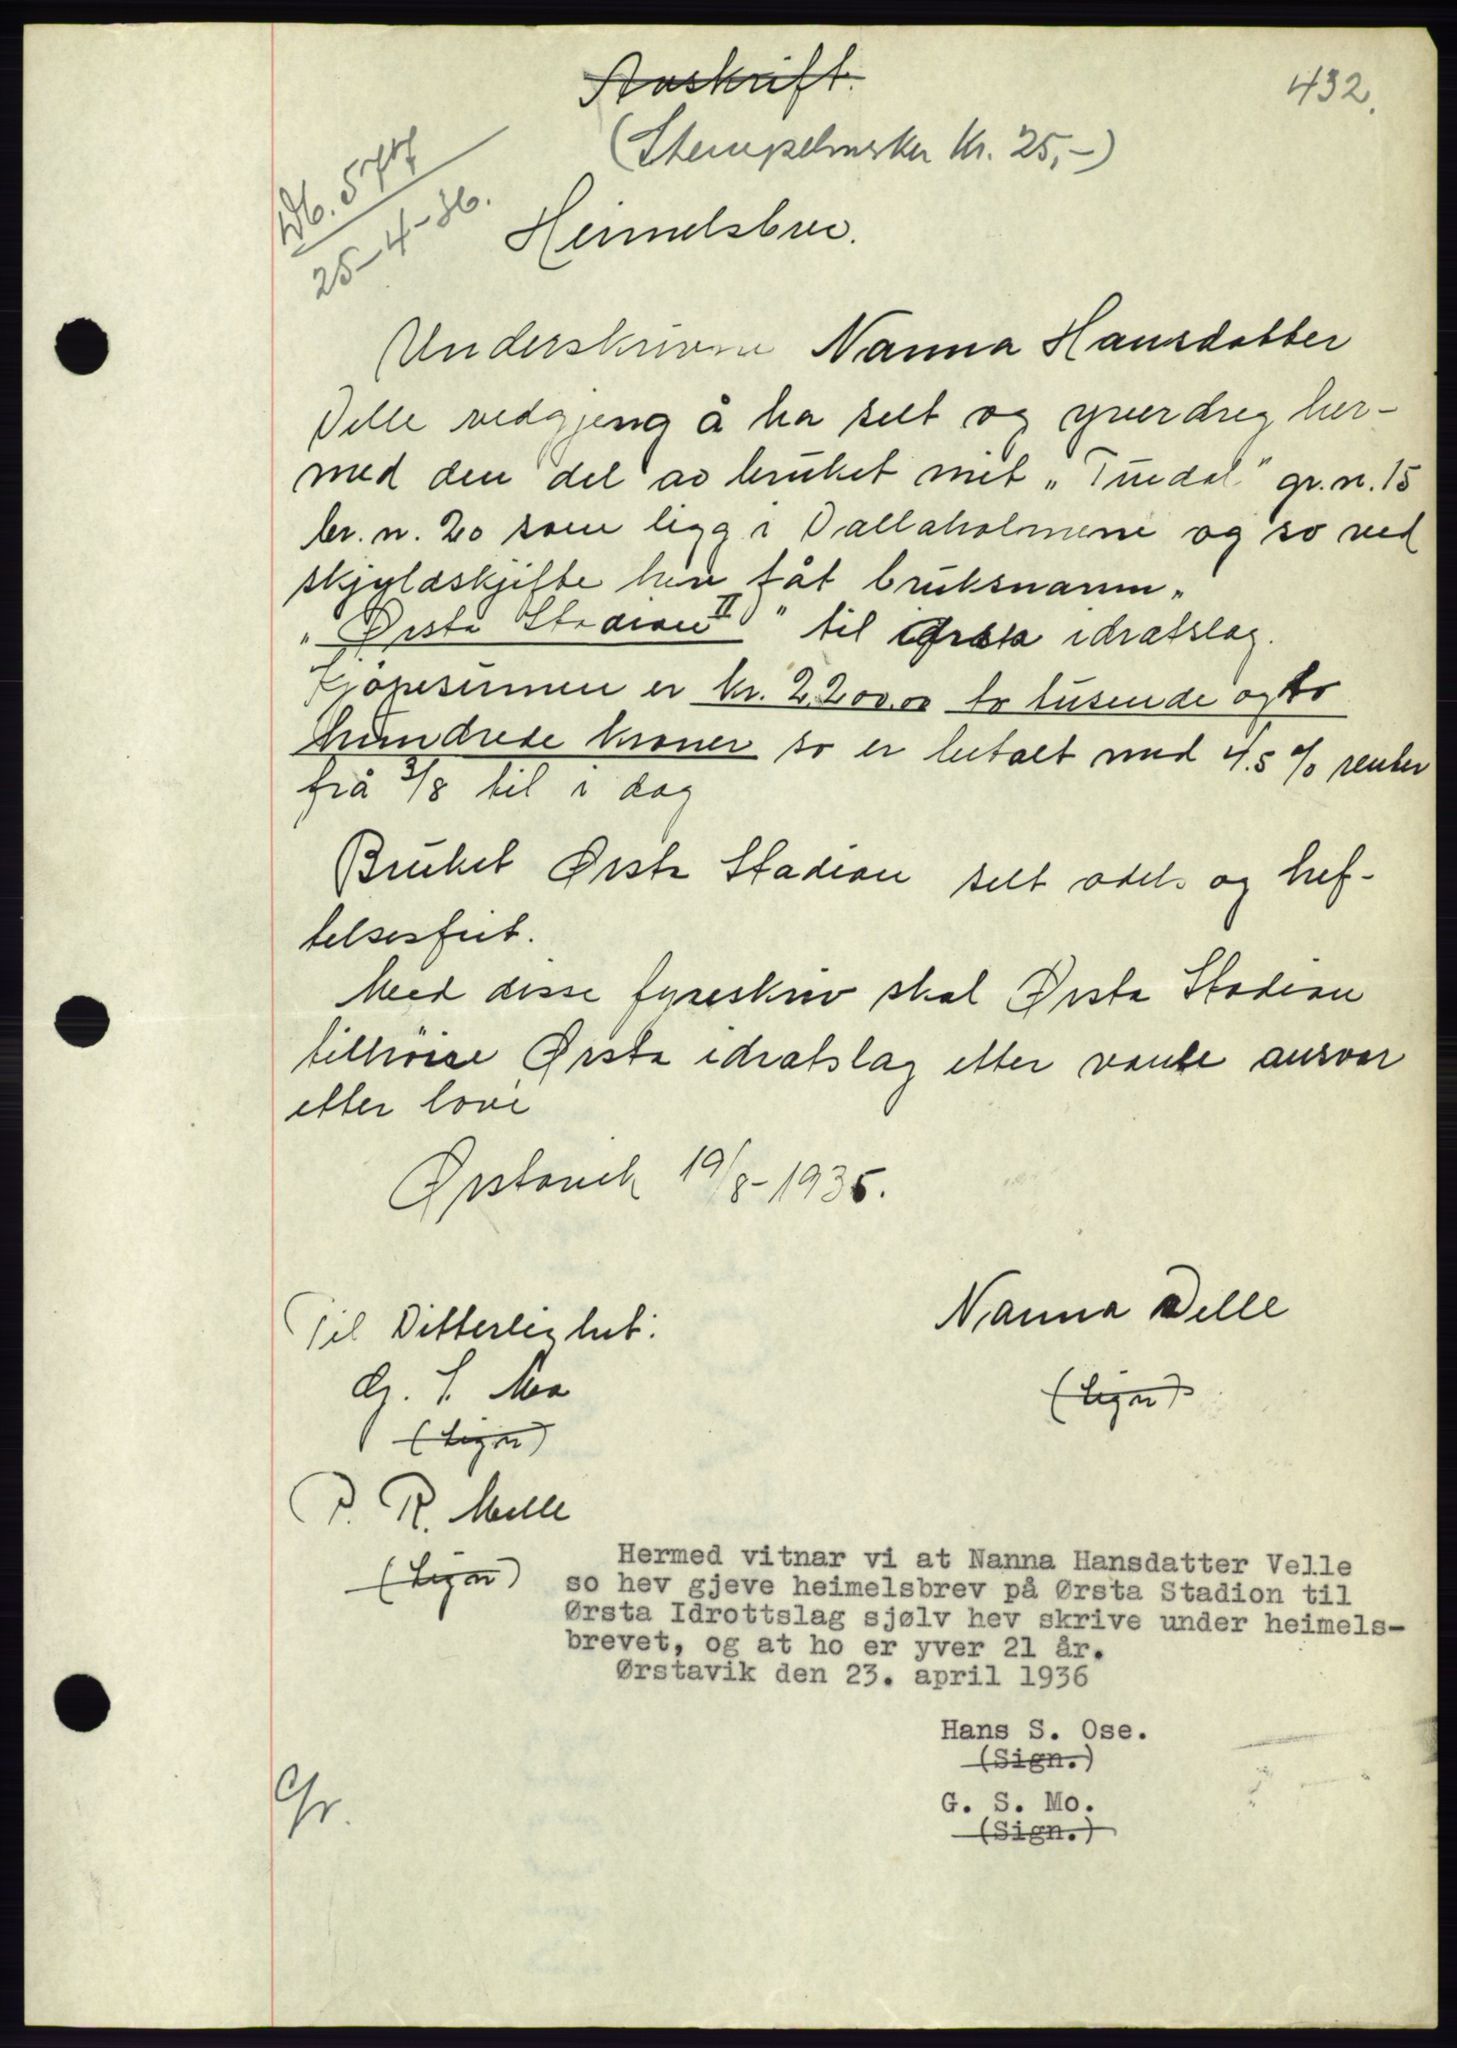 Avskrift.
432.
(Stempelmerker Kr. 25,-)
Db. 577
25-4-36.
Heimelsbrev.
Underskrivne Nanna Hansdotter
Velle vedgjeng å ha selt og yverdreg her-
med den del av bruket mit „ Tuedal " gr.n. 15
br. n. 20 som ligg i Vallaholmene og so ved
skjyldskjifte hev fåt bruksnamn „
„ Ørsta Stadion II " til Ørsta idratslag.
Kjöpesumen er kr. 2.200.00 to tusende og to
hundrede kroner so er betalt med 4.5 % renter
frå 3/8 til i dag
Bruket Ørsta Stadion selt odels og hef-
telsesfrit.
Med disse fyreskriv skal Ørsta Stadion
tilhöire Ørsta idratslag etter vanle ansvar
etter lovi
Ørstavik 19/8-1935.
Nanna Velle
(Sign)
Til Vitterlighet:
G. S. Mo
(Sign)
P. R. Melle
(Sign)
Hermed vitnar vi at Nanna Hansdatter Velle
so hev gjeve heimelsbrev på Ørsta Stadion til
Ørsta Idrottslag sjølv hev skrive under heimels-
brevet, og at ho er yver 21 år.
Ørstavik den 23. april 1936
Hans S. Ose.
(Sign.)
G. S. Mo.
(Sign.)
Gr.